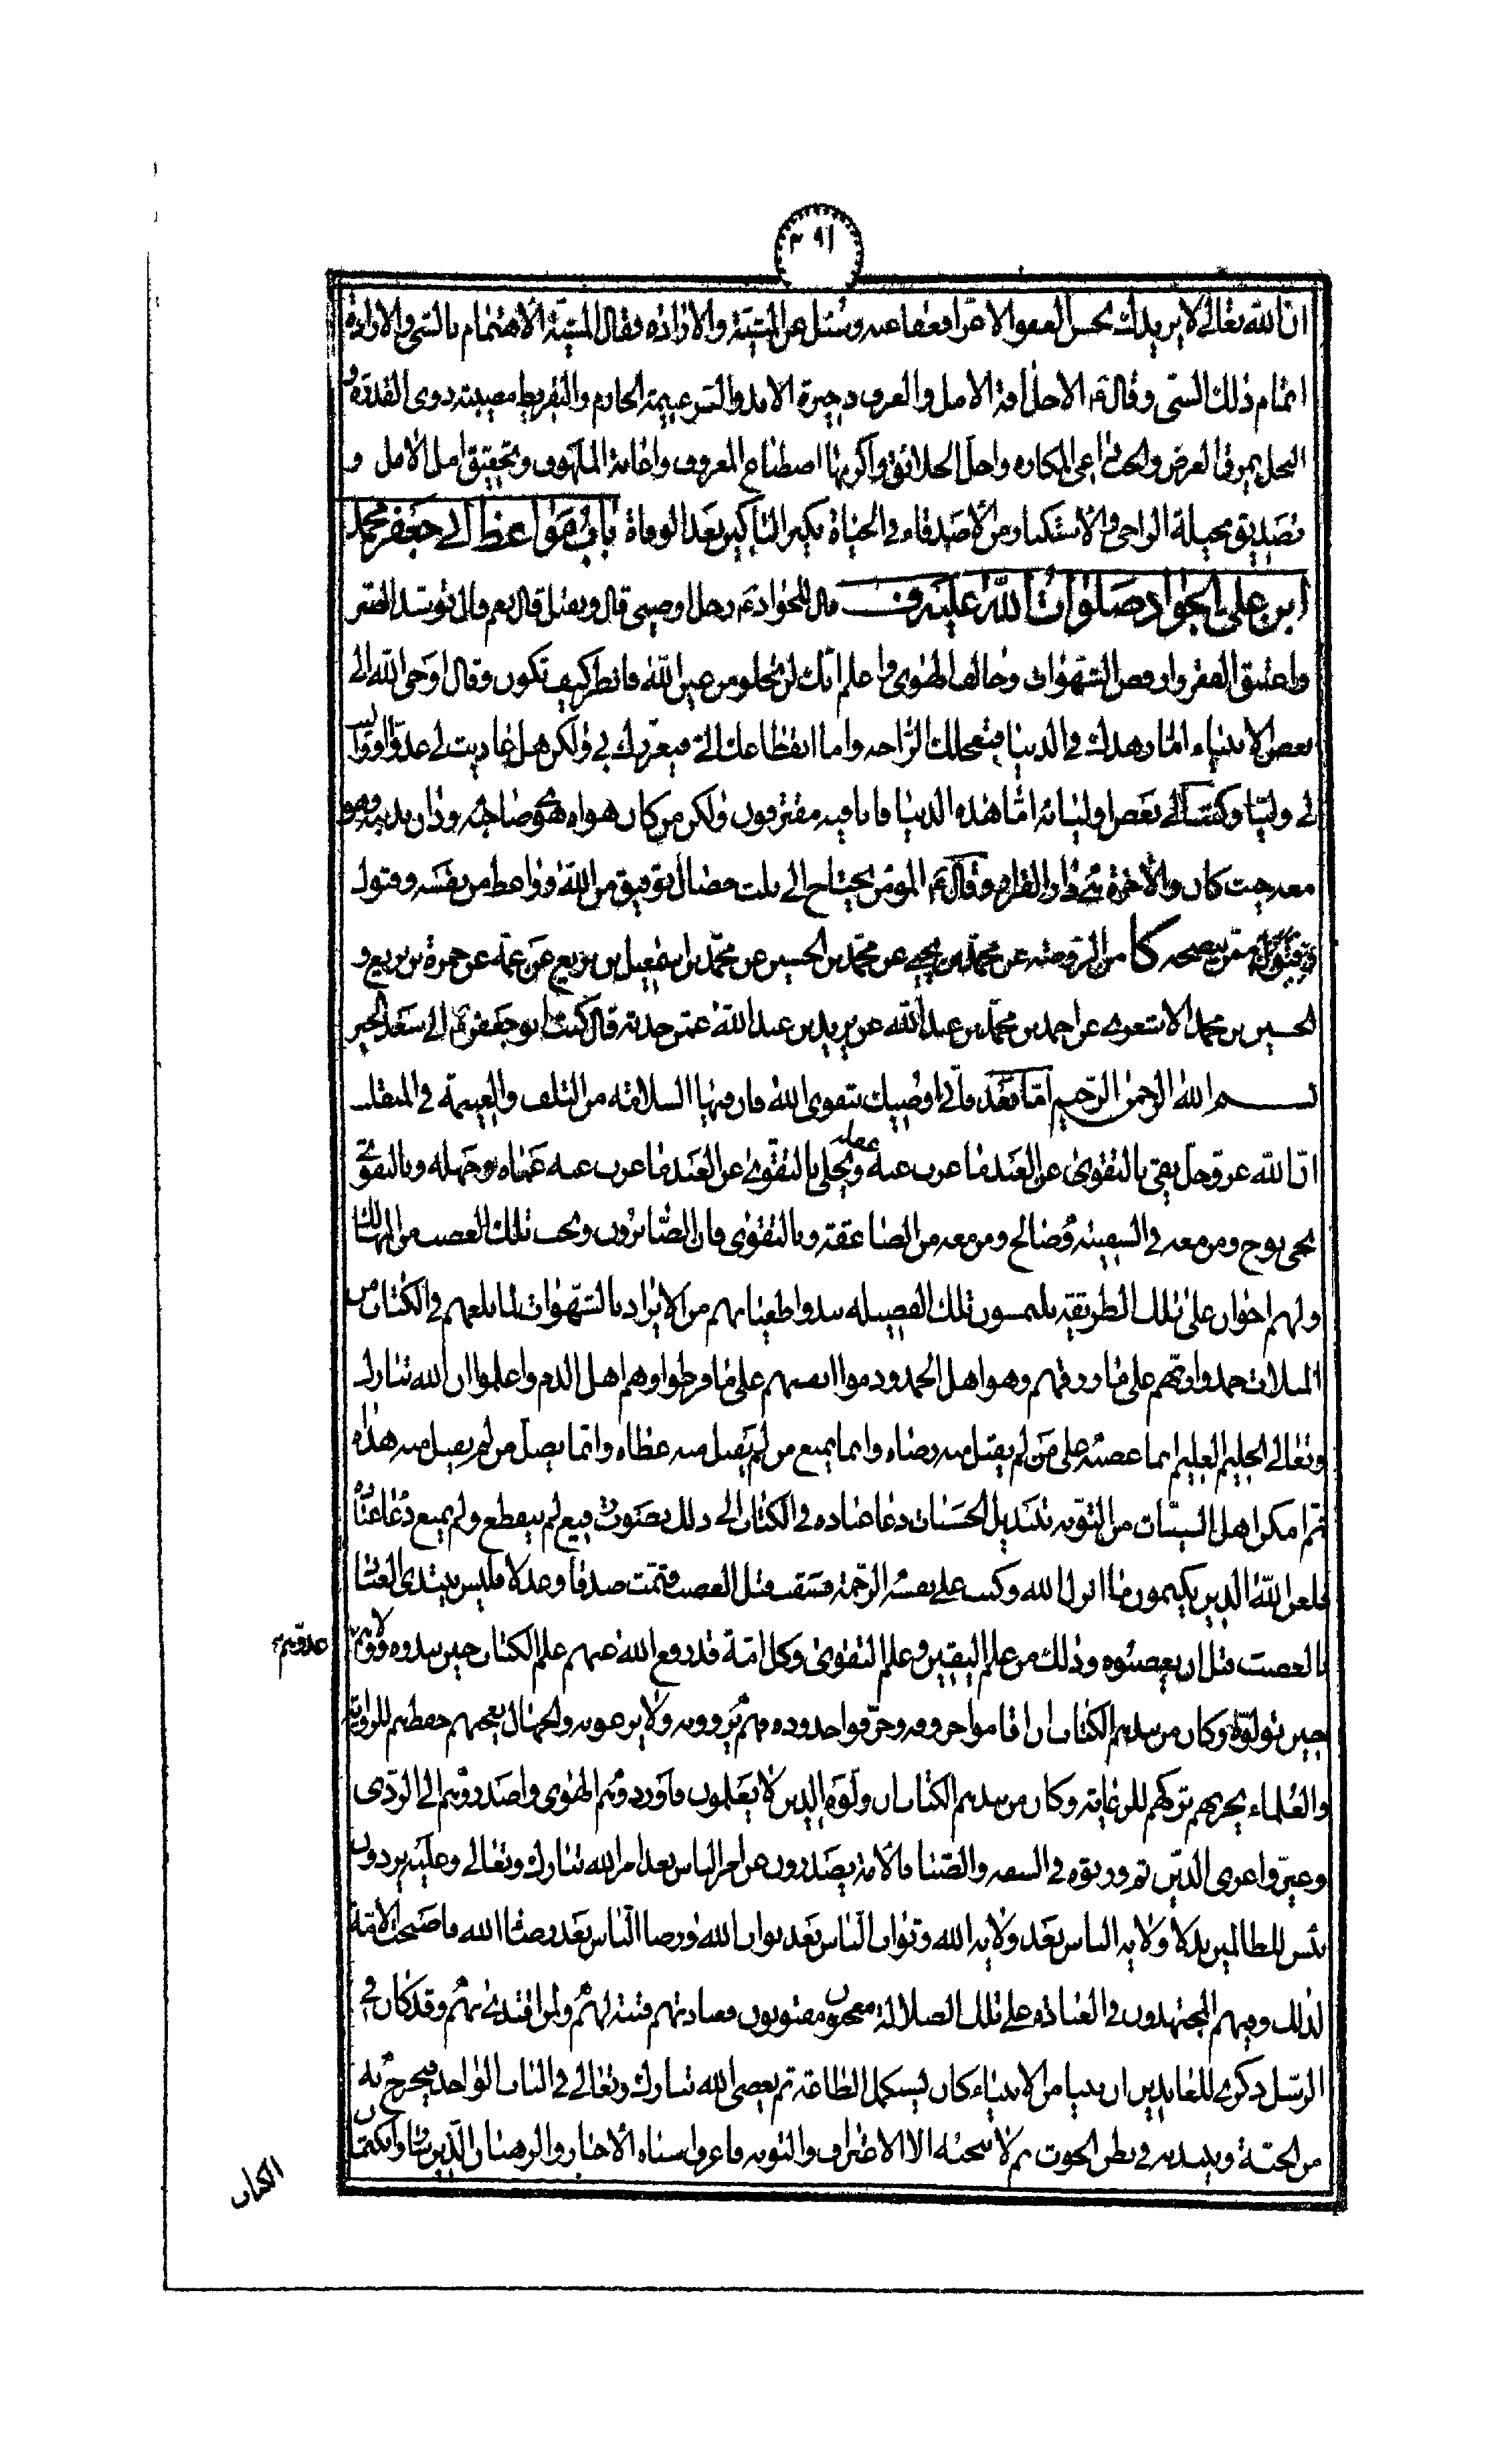 ٣٩١
ان الله تعالى لا يزيدك بحسن العفو الا عزا فعفا عنه وسئل عن المشية والارادة فقال المشية الاهتمام بالشئ والارادة
اتمام ذلك الشئ وقال ع الاجل آفة الامل والعرف ذخيرة الابد والبر غنيمة الحازم والتفريط مصيبة ذوى القدرة و
البخل يمزق العرض والحب داعى المكاره واجل الخلائق واكرمها اصطناع المعروف واغاثة الملهوف وتحقيق امل الامل و
تصديق مخيلة الراجى والاستكثار من الاصدقاء في الحياة يكثر الباكين بعد الوفاة باب مواعظ ابى جعفر محمد
ابن على الجواد صلوات الله عليه ف قال للجواد ع رجل اوصنى قال وتقبل قال نعم قال توسد الصبر
واعتنق الفقر وارفض الشهوات وخالف الهوى واعلم انك لن تخلو من عين الله فانظر كيف تكون وقال اوحى الله الى
بعض الانبياء اما زهدك في الدنيا فتعجلك الراحة واما انقطاعك الى فيعززك بى ولكن هل عاديت لى عدوا او واليت
لى وليا وكتب الى بعض اوليائه اما هذه الدنيا فانا فيه مغترفون ولكن من كان هواه هوى صاحبه ودان بدينه فهو
معه حيث كان والآخرة هى دار القرار وقال ع المؤمن يحتاج الى ثلث خصال توفيق من الله وواعظ من نفسه وقبول
ممن ينصحه كا من الروضة عن محمد بن يحيى عن محمد بن الحسين عن محمد بن اسمعيل بن بزيع عن عمه عن حمزة بن بزيع و
الحسين بن محمد الاشعرى عن احمد بن محمد بن عبد الله عن يزيد بن عبد الله عمن حدثه قال كتب ابو جعفر ع الى سعد الخير
بسم الله الرحمن الرحيم اما بعد فانى اوصيك بتقوى الله فان فيها السلامة من التلف والغنيمة في المنقلب
ان الله عز وجل يقى بالتقوى عن العبد ما عزب عنه عقله ويجلى بالتقوى عن العبد ما عزب عنه عماه وجهله وبالتقوى
نجى نوح ومن معه في السفينة وصالح ومن معه من الصاعقة وبالتقوى فاز الصابرون ونجت تلك العصب من المهالك
ولهم اخوان على تلك الطريقة يلتمسون تلك الفضيلة نبذوا طغيانهم من الايراد بالشهوات لما بلغهم في الكتاب من
المثلات حمدوا ربهم على ما رزقهم وهو اهل الحمد وذموا انفسهم على ما فرطوا وهم اهل الذم واعلموا ان الله تبارك
وتعالى الحليم العليم انما غضبه على من لم يقبل منه رضاه وانما يمنع من لم يقبل منه عطاه وانما يضل من لم يقبل منه هداه
ثم امكن اهل السيئات من التوبة بتبديل الحسنات دعا عباده في الكتاب الى ذلك بصوت رفيع لم ينقطع ولم يمنع دعا عباده
فلعن الله الذين يكتمون ما انزل الله وكتب على نفسه الرحمة فسبقت قبل الغضب فتمت صدقا وعدلا فليس يبتدى العباد
بالغضب قبل ان يغضبوه وذلك من علم اليقين وعلم التقوى وكل امة قد رفع الله عنهم علم الكتاب حين نبذوه وولاهم
عدوهم
حين تولوه وكان من نبذهم الكتاب ان اقاموا حروفه وحرفوا حدوده فهم يروونه ولا يرعونه والجهال يعجبهم حفظهم للرواية
والعلماء يحزنهم تركهم للرعاية وكان من نبذهم الكتاب ان ولوه الذين لا يعلمون فاوردوهم الهوى واصدروهم الى الردى
وغيروا عرى الدين ثم ورثوه في السفه والصبا فالامة يصدرون عن امر الناس بعد امر الله تبارك وتعالى وعليه يردون
بئس للظالمين بدلا ولاية الناس بعد ولاية الله وثواب الناس بعد ثواب الله ورضا الناس بعد رضا الله فاصبحت الامة
لذلك وفيهم المجتهدون في العبادة على تلك الضلالة معجبون مفتونون فعبادتهم فتنة لهم ولمن اقتدى بهم وقد كان في
الرسل ذكرى للعابدين ان نبيا من الانبياء كان يستكمل الطاعة ثم يعصى الله تبارك وتعالى في الباب الواحد فيخرج به
من الجنة وينبذ به في بطن الحوت ثم لا ينجيه الا الاعتراف والتوبة فاعرف اشباه الاحبار والرهبان الذين ساروا بكتمان
الكتاب